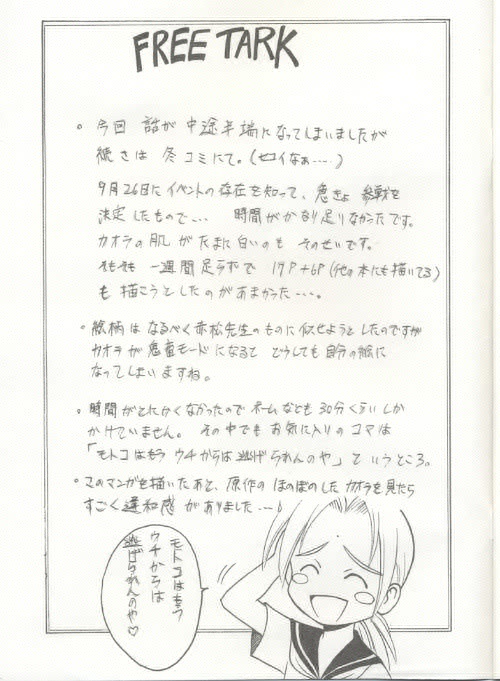 FREE TARK
。今回 話が 中途半端になってしまいましたが
続きは 冬コミにて。(セコイなぁ‥‥)
9月26日にイベントの存在を知って、急きょ 参戦を
決定したもので‥‥ 時間がかなり足りなかったです。
カオラの肌 がたまに白いのも そのせいです。
そもそも 一週間足らずで 17P+6P(他の本にも描いてる)
も描こうとしたのがあまかった‥‥。
。絵柄は なるべく赤松先生のものに似せようとしたのですが
カオラが 鬼畜モードになると どうしても自分の絵に
なってしまいますね。
。時間がとにかくなかったので ネームなども 30分くらいしか
かけていません。 その中でも お気に入りのコマは
「モトコはもう ウチからは 逃げられんのや」というところ。
。このマンガを描いたあと、原作の ほのぼのした カオラを見たら
すごく違和感 がありました‥‥
モトコはもう
ウチからは
逃げられんのや♡